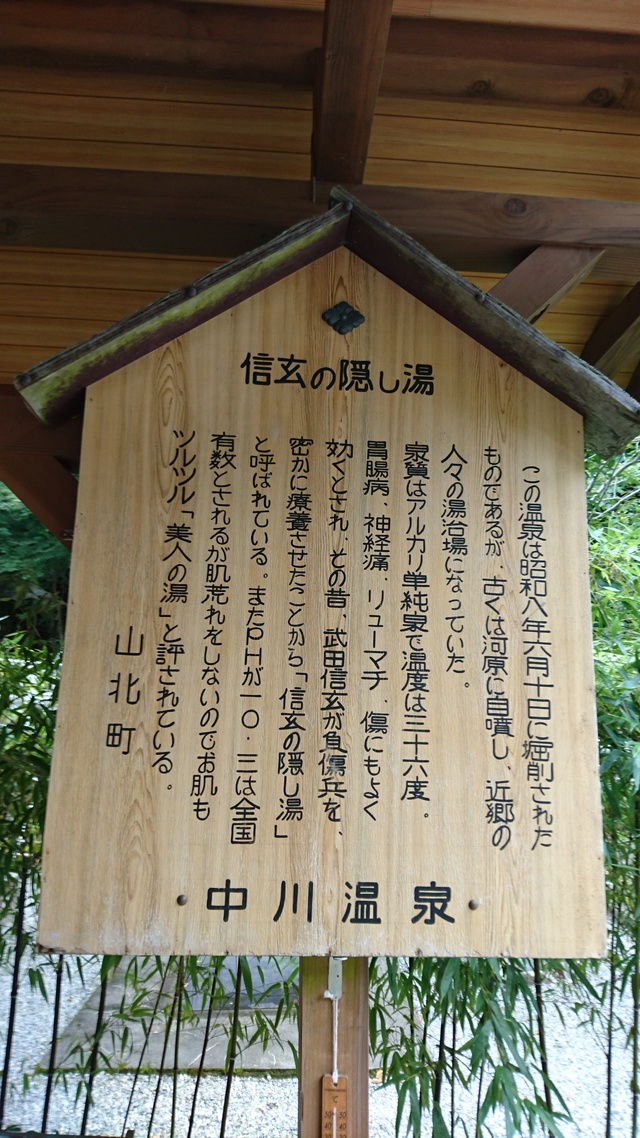 信玄の隠し湯
この温泉は昭和八年六月十日に堀削された
ものであるが、古くは河原に自噴し、近郷の
人々の湯治場になっていた。
泉質はアルカリ単純泉で温度は三十六度。
胃腸病、神経痛、リューマチ、傷にもよく
効くとされ、その昔、武田信玄が負傷兵を、
密かに療養させたことから「信玄の隠し湯」
と呼ばれている。またPHが一〇・三は全国
有数とされるが肌荒れをしないのでお肌も
ツルツル「美人の湯」と評されている。
山北町
中川温泉
℃
50 50
40 40